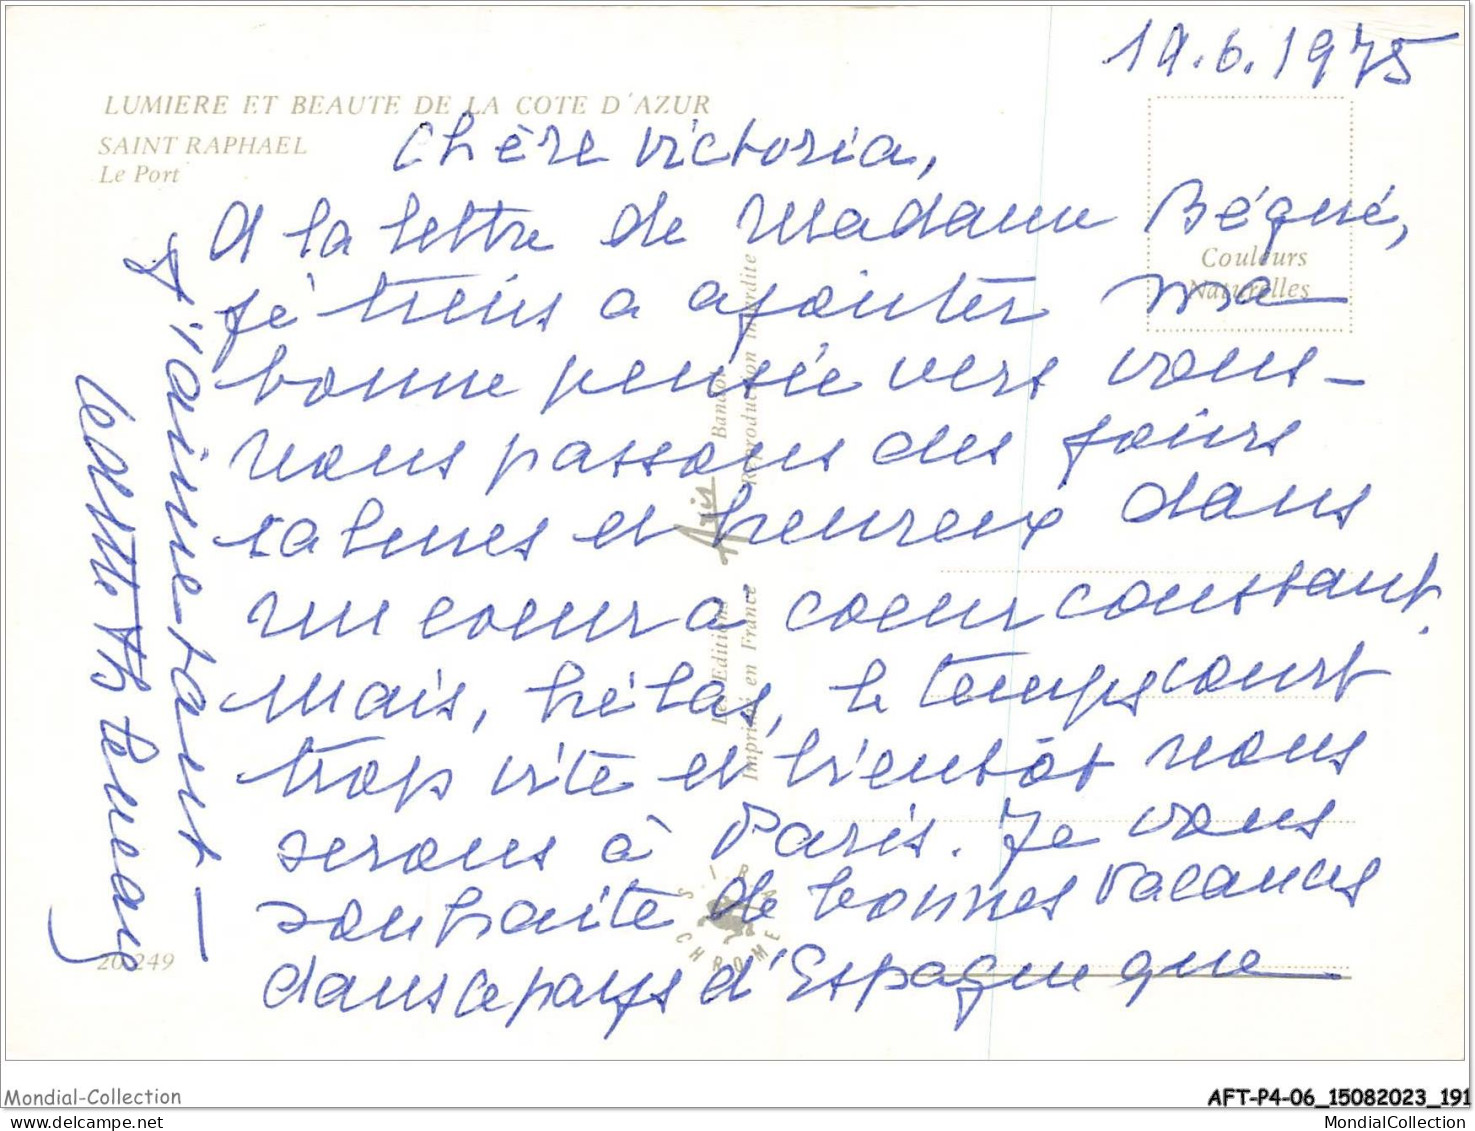 19.6.1975
LUMIERE ET BEAUTE DE LA COTE D'AZUR
SAINT RAPHAEL
Le Port
Chère Victoria,
A la lettre de Madame Béqué,
je tiens a ajouter ma
bonne pensée vers vous –
nous passons des jours
calmes et heureux dans
un coeur a coeur constant.
Mais, hélas, le temps court
trop vite et bientôt nous
serons à Paris. Je vous
souhaite de bonnes vacances
dans ce pays d'Espagne que
j'aime tant –
Couleurs
Naturelles
Les Editions Aris Bandol
Imprimé en France Reproduction interdite
S.I.R.A.
CHROME
20.249
Mondial-Collection
AFT-P4-06_15082023_191
MondialCollection